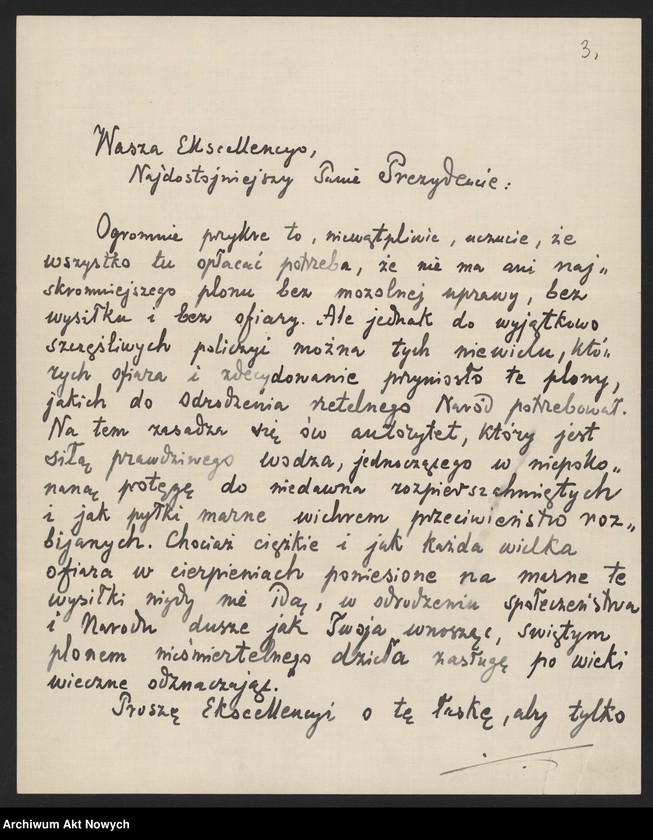 3,
Wasza Ekscellencyo,
Najdostojniejszy Panie Prezydencie:
Ogromnie przykre to, niewątpliwie, uczucie, że
wszystko tu opłacać potrzeba, że nie ma ani naj„
skromniejszego plonu bez mozolnej uprawy, bez
wysiłku i bez ofiary. Ale jednak do wyjątkowo
szczęśliwych policzyć można tych niewielu, któ„
rych ofiara i zdecydowanie przyniosło te plony,
jakich do odrodzenia rzetelnego Naród potrzebował.
Na tem zasadza się ów autorytet, który jest
siłą prawdziwego wodza, jednoczącego w niepoko„
naną potęgę do niedawna rozpierszchniętych
i jak pyłki marne wichrem przeciwieństw roz„
bijanych. Chociaż ciężkie i jak każda wielka
ofiara w cierpieniach poniesione na marne te
wysiłki nigdy nie idą, w odrodzeniu społeczeństwa
i Narodu dusze jak Twoja wnosząc, świętym
plonem nieśmiertelnego dzieła zasługę po wieki
wieczne odznaczając.
Proszę Ekscellencyi o tę łaskę, aby tylko
Archiwum Akt Nowych